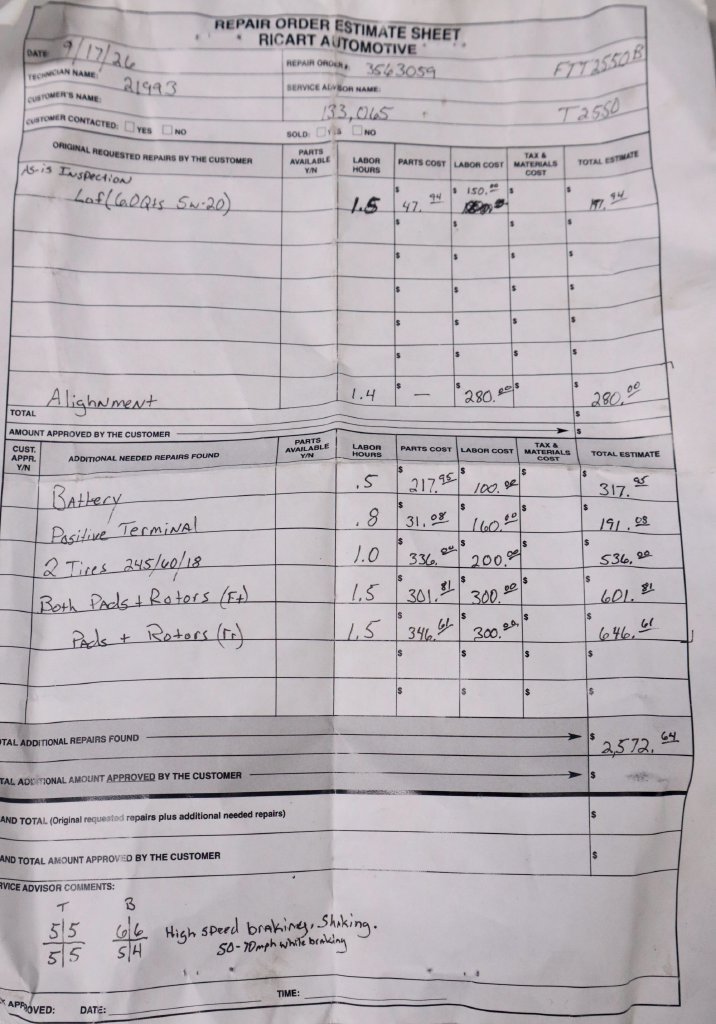 REPAIR ORDER ESTIMATE SHEET
RICART AUTOMOTIVE
DATE 9/17/26
REPAIR ORDER# 3563059 FTT2550B
TECHNICIAN NAME: 21993
SERVICE ADVISOR NAME:
CUSTOMER'S NAME: 133,065 T2550
CUSTOMER CONTACTED: YES NO SOLD: YES NO
ORIGINAL REQUESTED REPAIRS BY THE CUSTOMER PARTS AVAILABLE Y/N LABOR HOURS PARTS COST LABOR COST TAX & MATERIALS COST TOTAL ESTIMATE
AS-is Inspection
Lof (6.0Qts 5w-20) 1.5 $ 47.94 $ 150.00 $ $ 197.94
$ $ $ $
$ $ $ $
$ $ $ $
$ $ $ $
$ $ $ $
Alighnment 1.4 $ — $ 280.00 $ $ 280.00
TOTAL $
AMOUNT APPROVED BY THE CUSTOMER $
CUST. APPR. Y/N ADDITIONAL NEEDED REPAIRS FOUND PARTS AVAILABLE Y/N LABOR HOURS PARTS COST LABOR COST TAX & MATERIALS COST TOTAL ESTIMATE
Battery .5 $ 217.95 $ 100.00 $ $ 317.95
Positive Terminal .8 $ 31.08 $ 160.00 $ $ 191.08
2 Tires 245/60/18 1.0 $ 336.00 $ 200.00 $ $ 536.00
Both Pads + Rotors (Ft) 1.5 $ 301.81 $ 300.00 $ $ 601.81
Pads + Rotors (rr) 1.5 $ 346.61 $ 300.00 $ $ 646.61
$ $ $ $
$ $ $ $
TAL ADDITIONAL REPAIRS FOUND $ 2,572.64
TAL ADDITIONAL AMOUNT APPROVED BY THE CUSTOMER $
AND TOTAL (Original requested repairs plus additional needed repairs) $
AND TOTAL AMOUNT APPROVED BY THE CUSTOMER $
RVICE ADVISOR COMMENTS:
T B
5|5 6|6 High speed braking, Shaking.
5|5 5|4 50-70mph while braking
APPROVED: DATE: TIME: